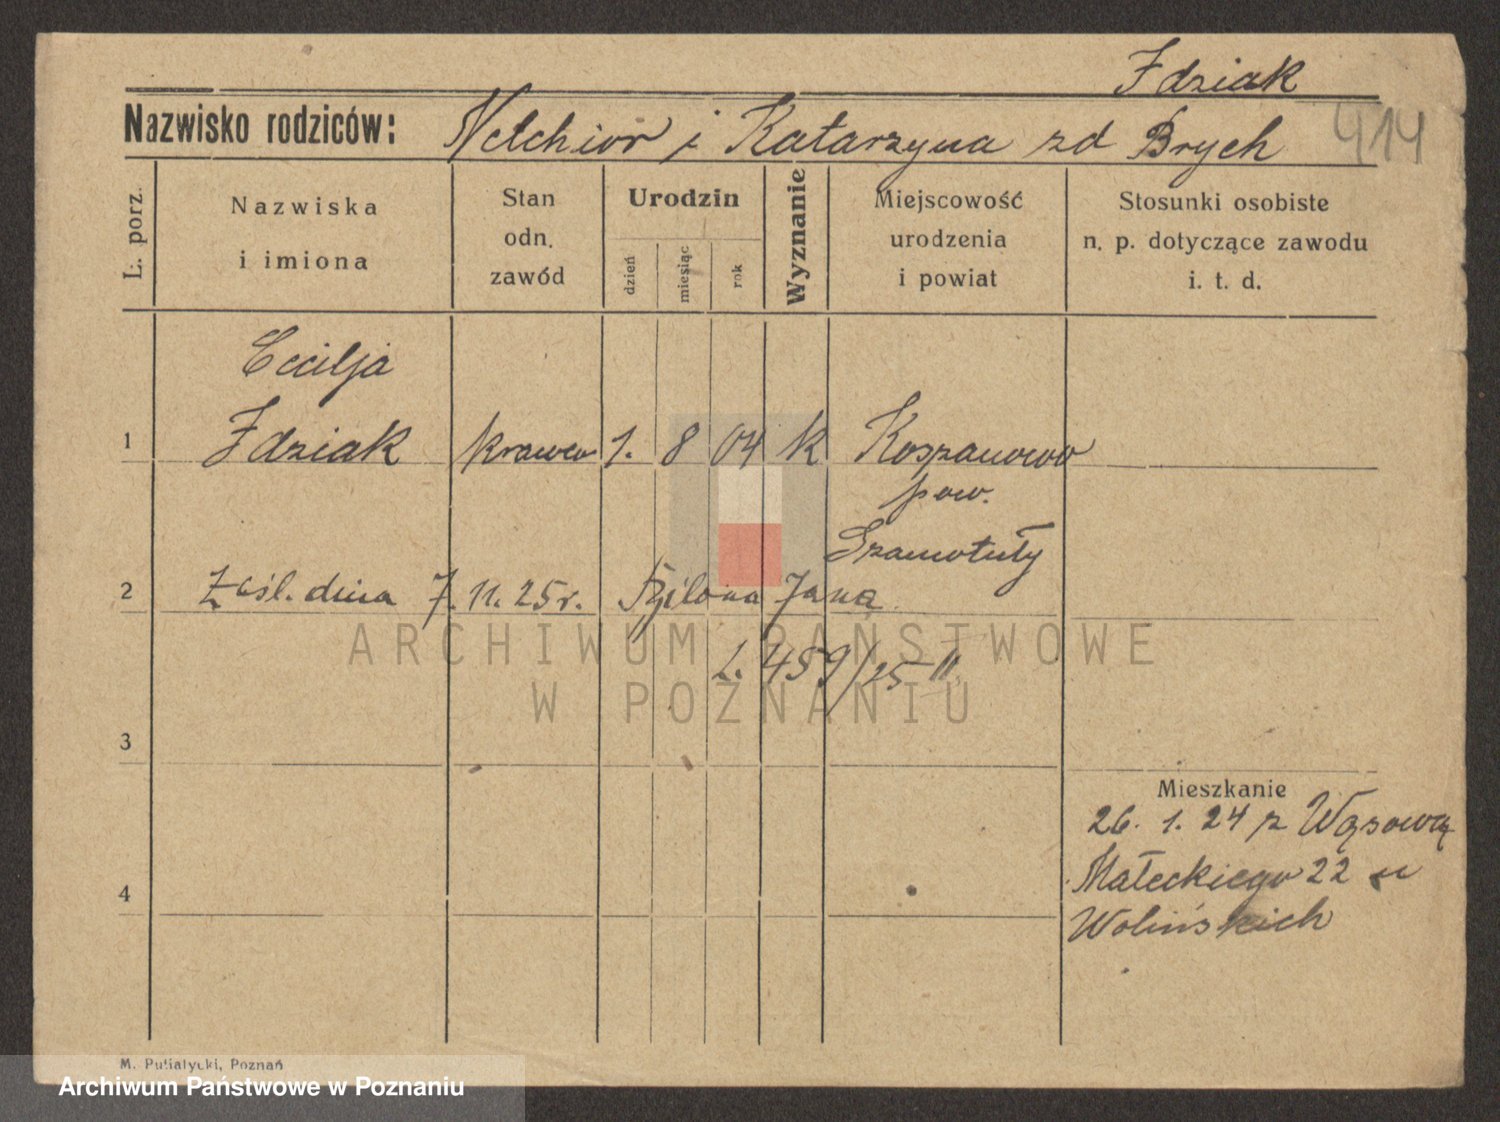 Idziak
Nazwisko rodziców: Melchior i Katarzyna zd Brych
414
L. porz.
Nazwiska
i imiona
Stan
odn.
zawód
Urodzin
dzień
miesiąc
rok
Wyznanie
Miejscowość
urodzenia
i powiat
Stosunki osobiste
n. p. dotyczące zawodu
i. t. d.
Cecilja
1 Idziak krawco 1. 8 04 k Koszanowo
pow.
Szamotuły
2 Zaśl. dnia 7. 11. 25 r. Jana
L. 459/25 II.
ARCHIWUM PAŃSTWOWE
W POZNANIU
3
Mieszkanie
26. 1. 24 z Wąsowa
Małeckiego 22 u
4
Wolińskich
M. Putiatycki, Poznań
Archiwum Państwowe w Poznaniu